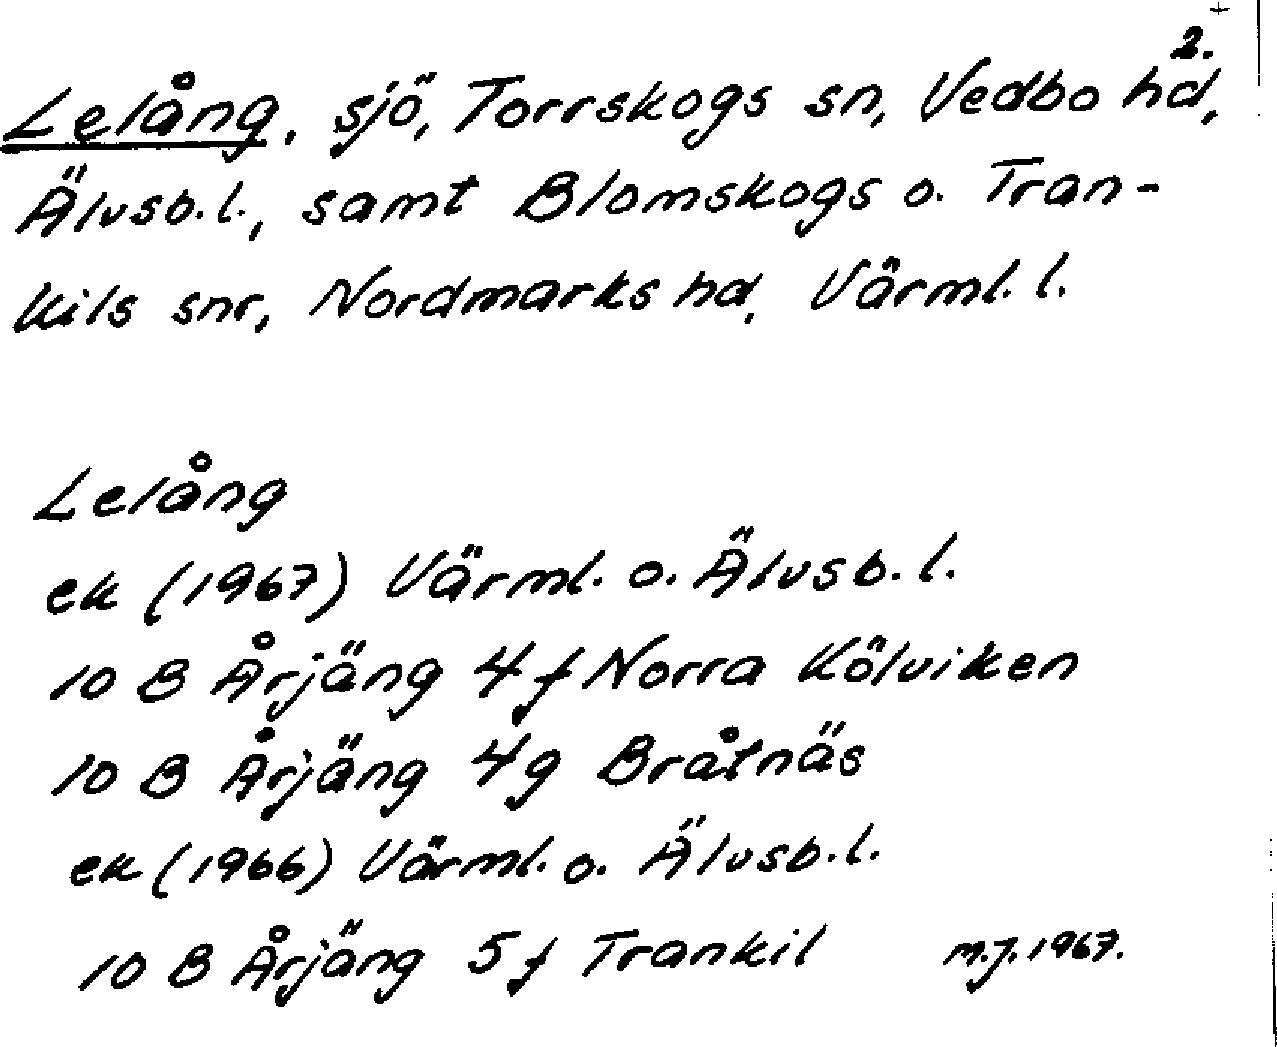 2.
Lelång, sjö, Torrskogs sn, Vedbo hd,
Älvsb. l., samt Blomskogs o. Tran-
kils snr, Nordmarks hd, Värml. l.
Lelång
ek (1967) Värml. o. Älvsb. l.
10 B Årjäng 4f Norra Kölviken
10 B Årjäng 4g Bråtnäs
ek (1966) Värml. o. Älvsb. l.
10 B Årjäng 5f Trankil m.j. 1967.